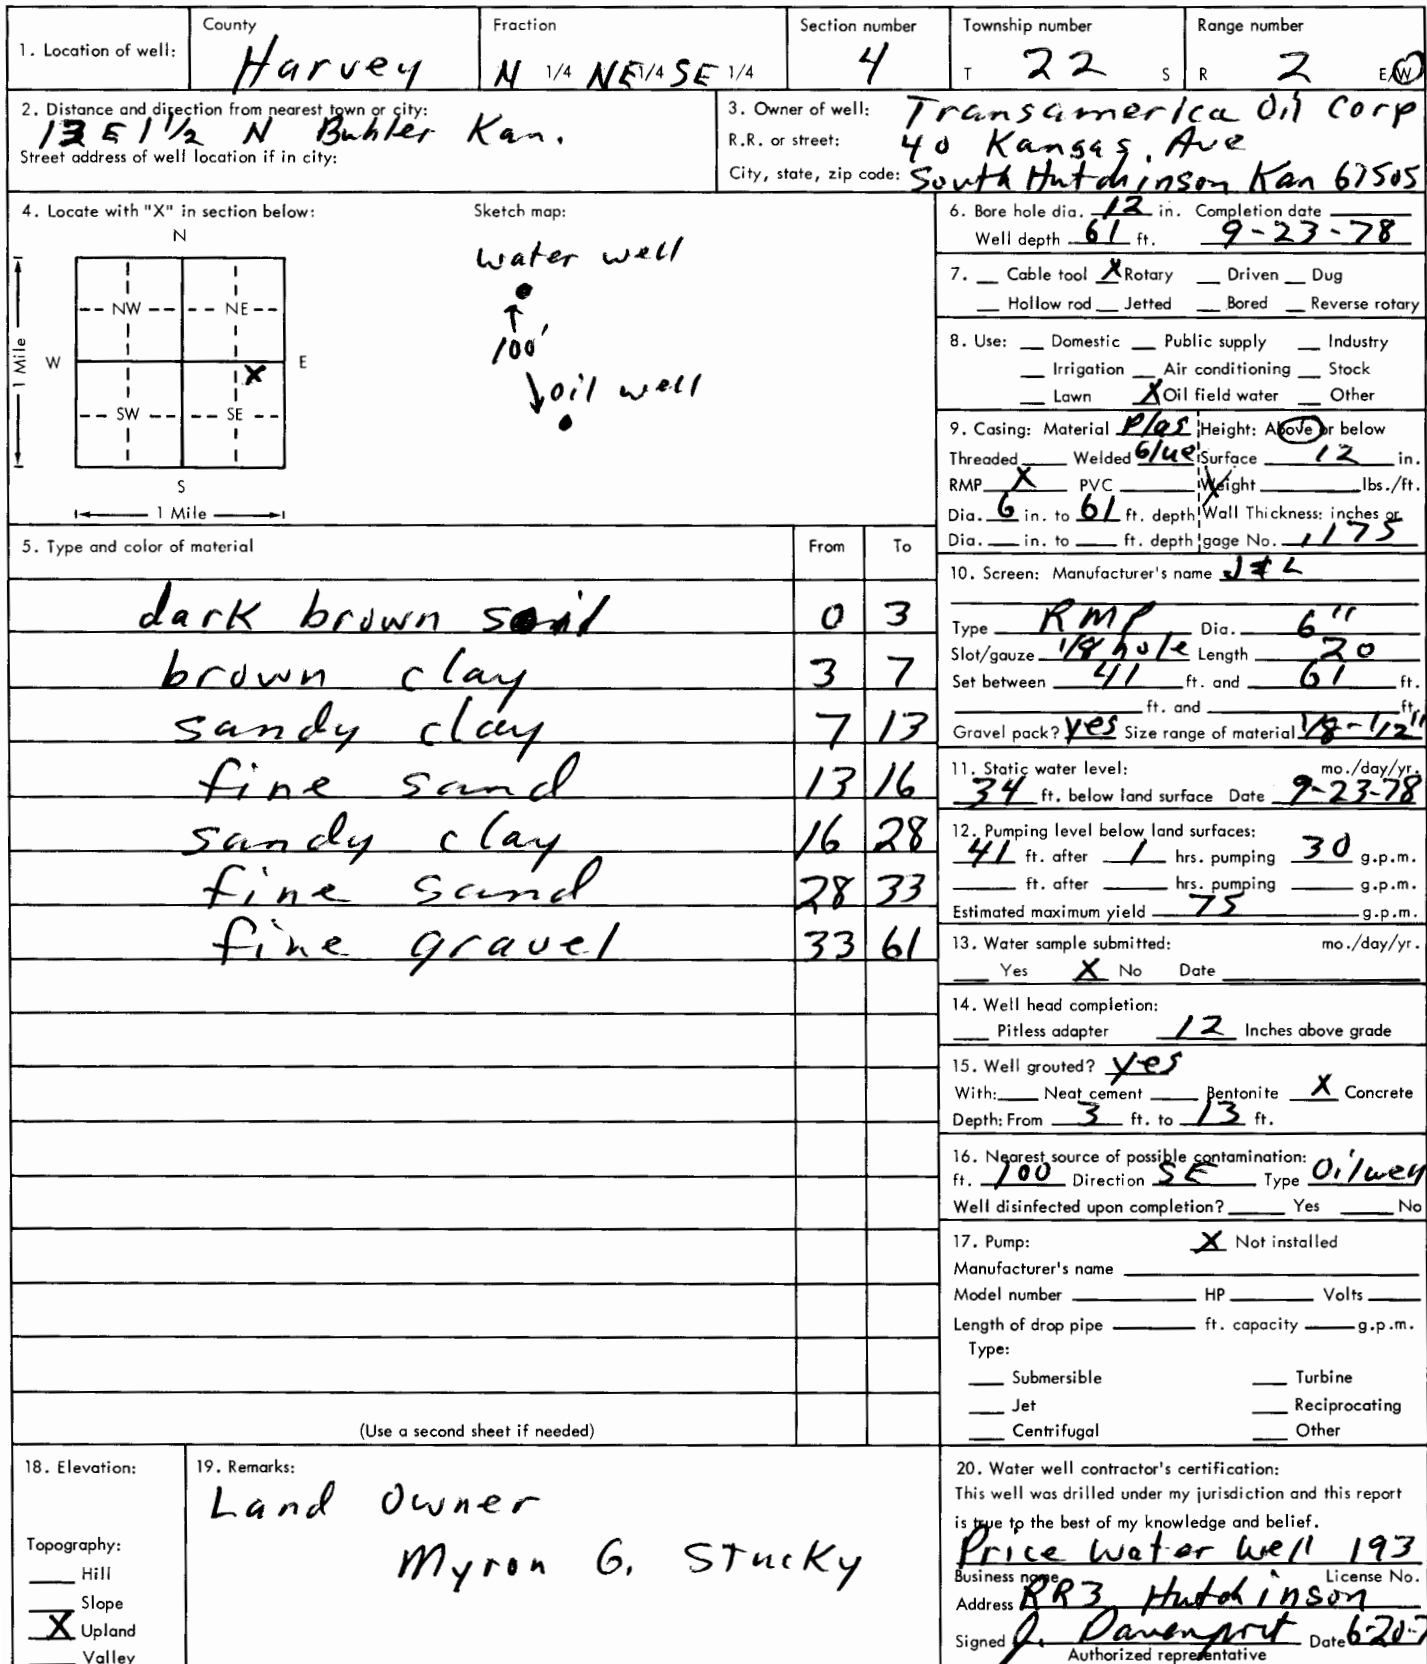 1. Location of well:
County
Harvey
Fraction
N 1/4 NE 1/4 SE 1/4
Section number
4
Township number
T 22 S
Range number
R 2 E/W
2. Distance and direction from nearest town or city:
13 E 1 1/2 N Buhler Kan.
Street address of well location if in city:
3. Owner of well: Transamerica Oil Corp
R.R. or street: 40 Kansas Ave
City, state, zip code: South Hutchinson Kan 67505
4. Locate with "X" in section below:
N
NW NE
W E
X
SW SE
S
1 Mile
1 Mile
Sketch map:
water well
100'
oil well
5. Type and color of material From To
dark brown soil 0 3
brown clay 3 7
sandy clay 7 13
fine sand 13 16
sandy clay 16 28
fine sand 28 33
fine gravel 33 61
(Use a second sheet if needed)
6. Bore hole dia. 12 in. Completion date
Well depth 61 ft. 9-23-78
7. Cable tool X Rotary Driven Dug
Hollow rod Jetted Bored Reverse rotary
8. Use: Domestic Public supply Industry
Irrigation Air conditioning Stock
Lawn X Oil field water Other
9. Casing: Material Plas Height: Above or below
Threaded Welded Glue Surface 12 in.
RMP X PVC Weight lbs./ft.
Dia. 6 in. to 61 ft. depth Wall Thickness: inches or
Dia. in. to ft. depth gage No. .175
10. Screen: Manufacturer's name
Type RMP Dia. 6"
Slot/gauze 1/8 hole Length 20
Set between 41 ft. and 61 ft.
ft. and ft.
Gravel pack? yes Size range of material 1/8-1/2"
11. Static water level: mo./day/yr.
34 ft. below land surface Date 9-23-78
12. Pumping level below land surfaces:
41 ft. after 1 hrs. pumping 30 g.p.m.
ft. after hrs. pumping g.p.m.
Estimated maximum yield 75 g.p.m.
13. Water sample submitted: mo./day/yr.
Yes X No Date
14. Well head completion:
Pitless adapter 12 Inches above grade
15. Well grouted? yes
With: Neat cement Bentonite X Concrete
Depth: From 3 ft. to 13 ft.
16. Nearest source of possible contamination:
ft. 100 Direction SE Type Oilwell
Well disinfected upon completion? Yes No
17. Pump: X Not installed
Manufacturer's name
Model number HP Volts
Length of drop pipe ft. capacity g.p.m.
Type:
Submersible Turbine
Jet Reciprocating
Centrifugal Other
18. Elevation:
Topography:
Hill
Slope
X Upland
Valley
19. Remarks:
Land Owner
Myron G. Stucky
20. Water well contractor's certification:
This well was drilled under my jurisdiction and this report
is true to the best of my knowledge and belief.
Price Water Well 193
Business name License No.
Address RR3 Hutchinson
Signed J. Davenport Date 6-20-7
Authorized representative